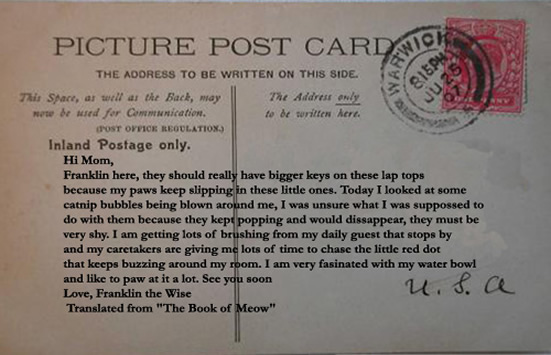 PICTURE POST CARD
THE ADDRESS TO BE WRITTEN ON THIS SIDE.
This Space, as well as the Back, may
now be used for Communication.
(POST OFFICE REGULATION.)
The Address only
to be written here.
Inland Postage only.
WARWICK
8 15 PM
JU 26
07
Hi Mom,
Franklin here, they should really have bigger keys on these lap tops
because my paws keep slipping in these little ones. Today I looked at some
catnip bubbles being blown around me, I was unsure what I was suppossed to
do with them because they kept popping and would dissappear, they must be
very shy. I am getting lots of brushing from my daily guest that stops by
and my caretakers are giving me lots of time to chase the little red dot
that keeps buzzing around my room. I am very fasinated with my water bowl
and like to paw at it a lot. See you soon
Love, Franklin the Wise
Translated from "The Book of Meow"
U. S. A